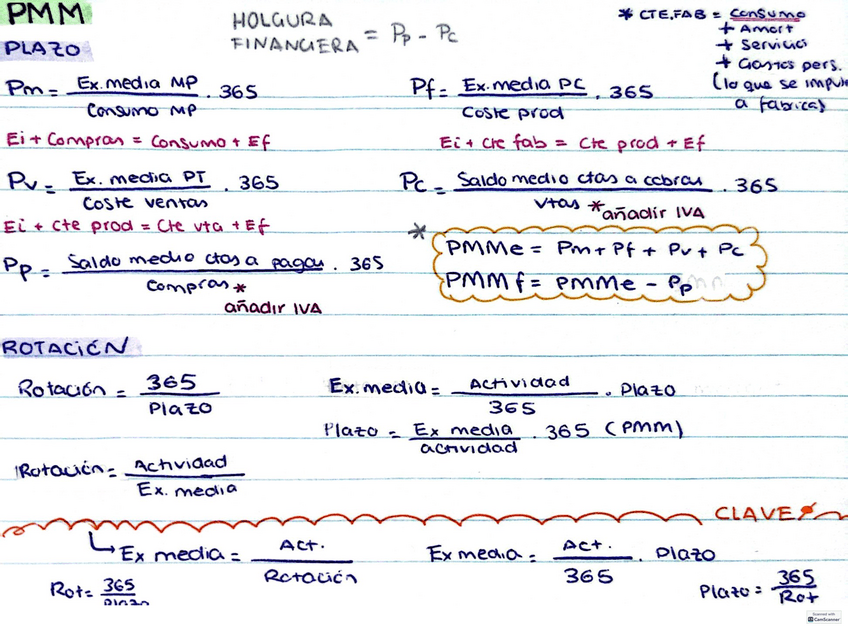 PMM
HOLGURA FINANCIERA = Pp - Pc
* CTE.FAB = consumo
+ Amort
+ Servicio
+ Gastos pers.
(lo que se impu
a fábrica)
PLAZO
Pm = Ex. media MP / Consumo MP . 365
Pf = Ex. media PC / Coste prod . 365
Ei + Compras = Consumo + Ef
Ei + cte fab = Cte prod + Ef
Pv = Ex. media PT / Coste ventas . 365
Pc = Saldo medio ctas a cobrar / Vtas * . 365
añadir IVA
Ei + Cte prod = Cte vta + Ef
Pp = Saldo medio ctas a pagar / Compras * . 365
añadir IVA
* PMMe = Pm + Pf + Pv + Pc
PMMf = PMMe - Pp
ROTACIÓN
Rotación = 365 / Plazo
Ex. media = Actividad / 365 . Plazo
Plazo = Ex media / actividad . 365 (PMM)
Rotación = Actividad / Ex. media
CLAVE
Ex media = Act. / Rotación
Ex media = Act. / 365 . Plazo
Rot = 365 / Plazo
Plazo = 365 / Rot
Scanned with
CamScanner